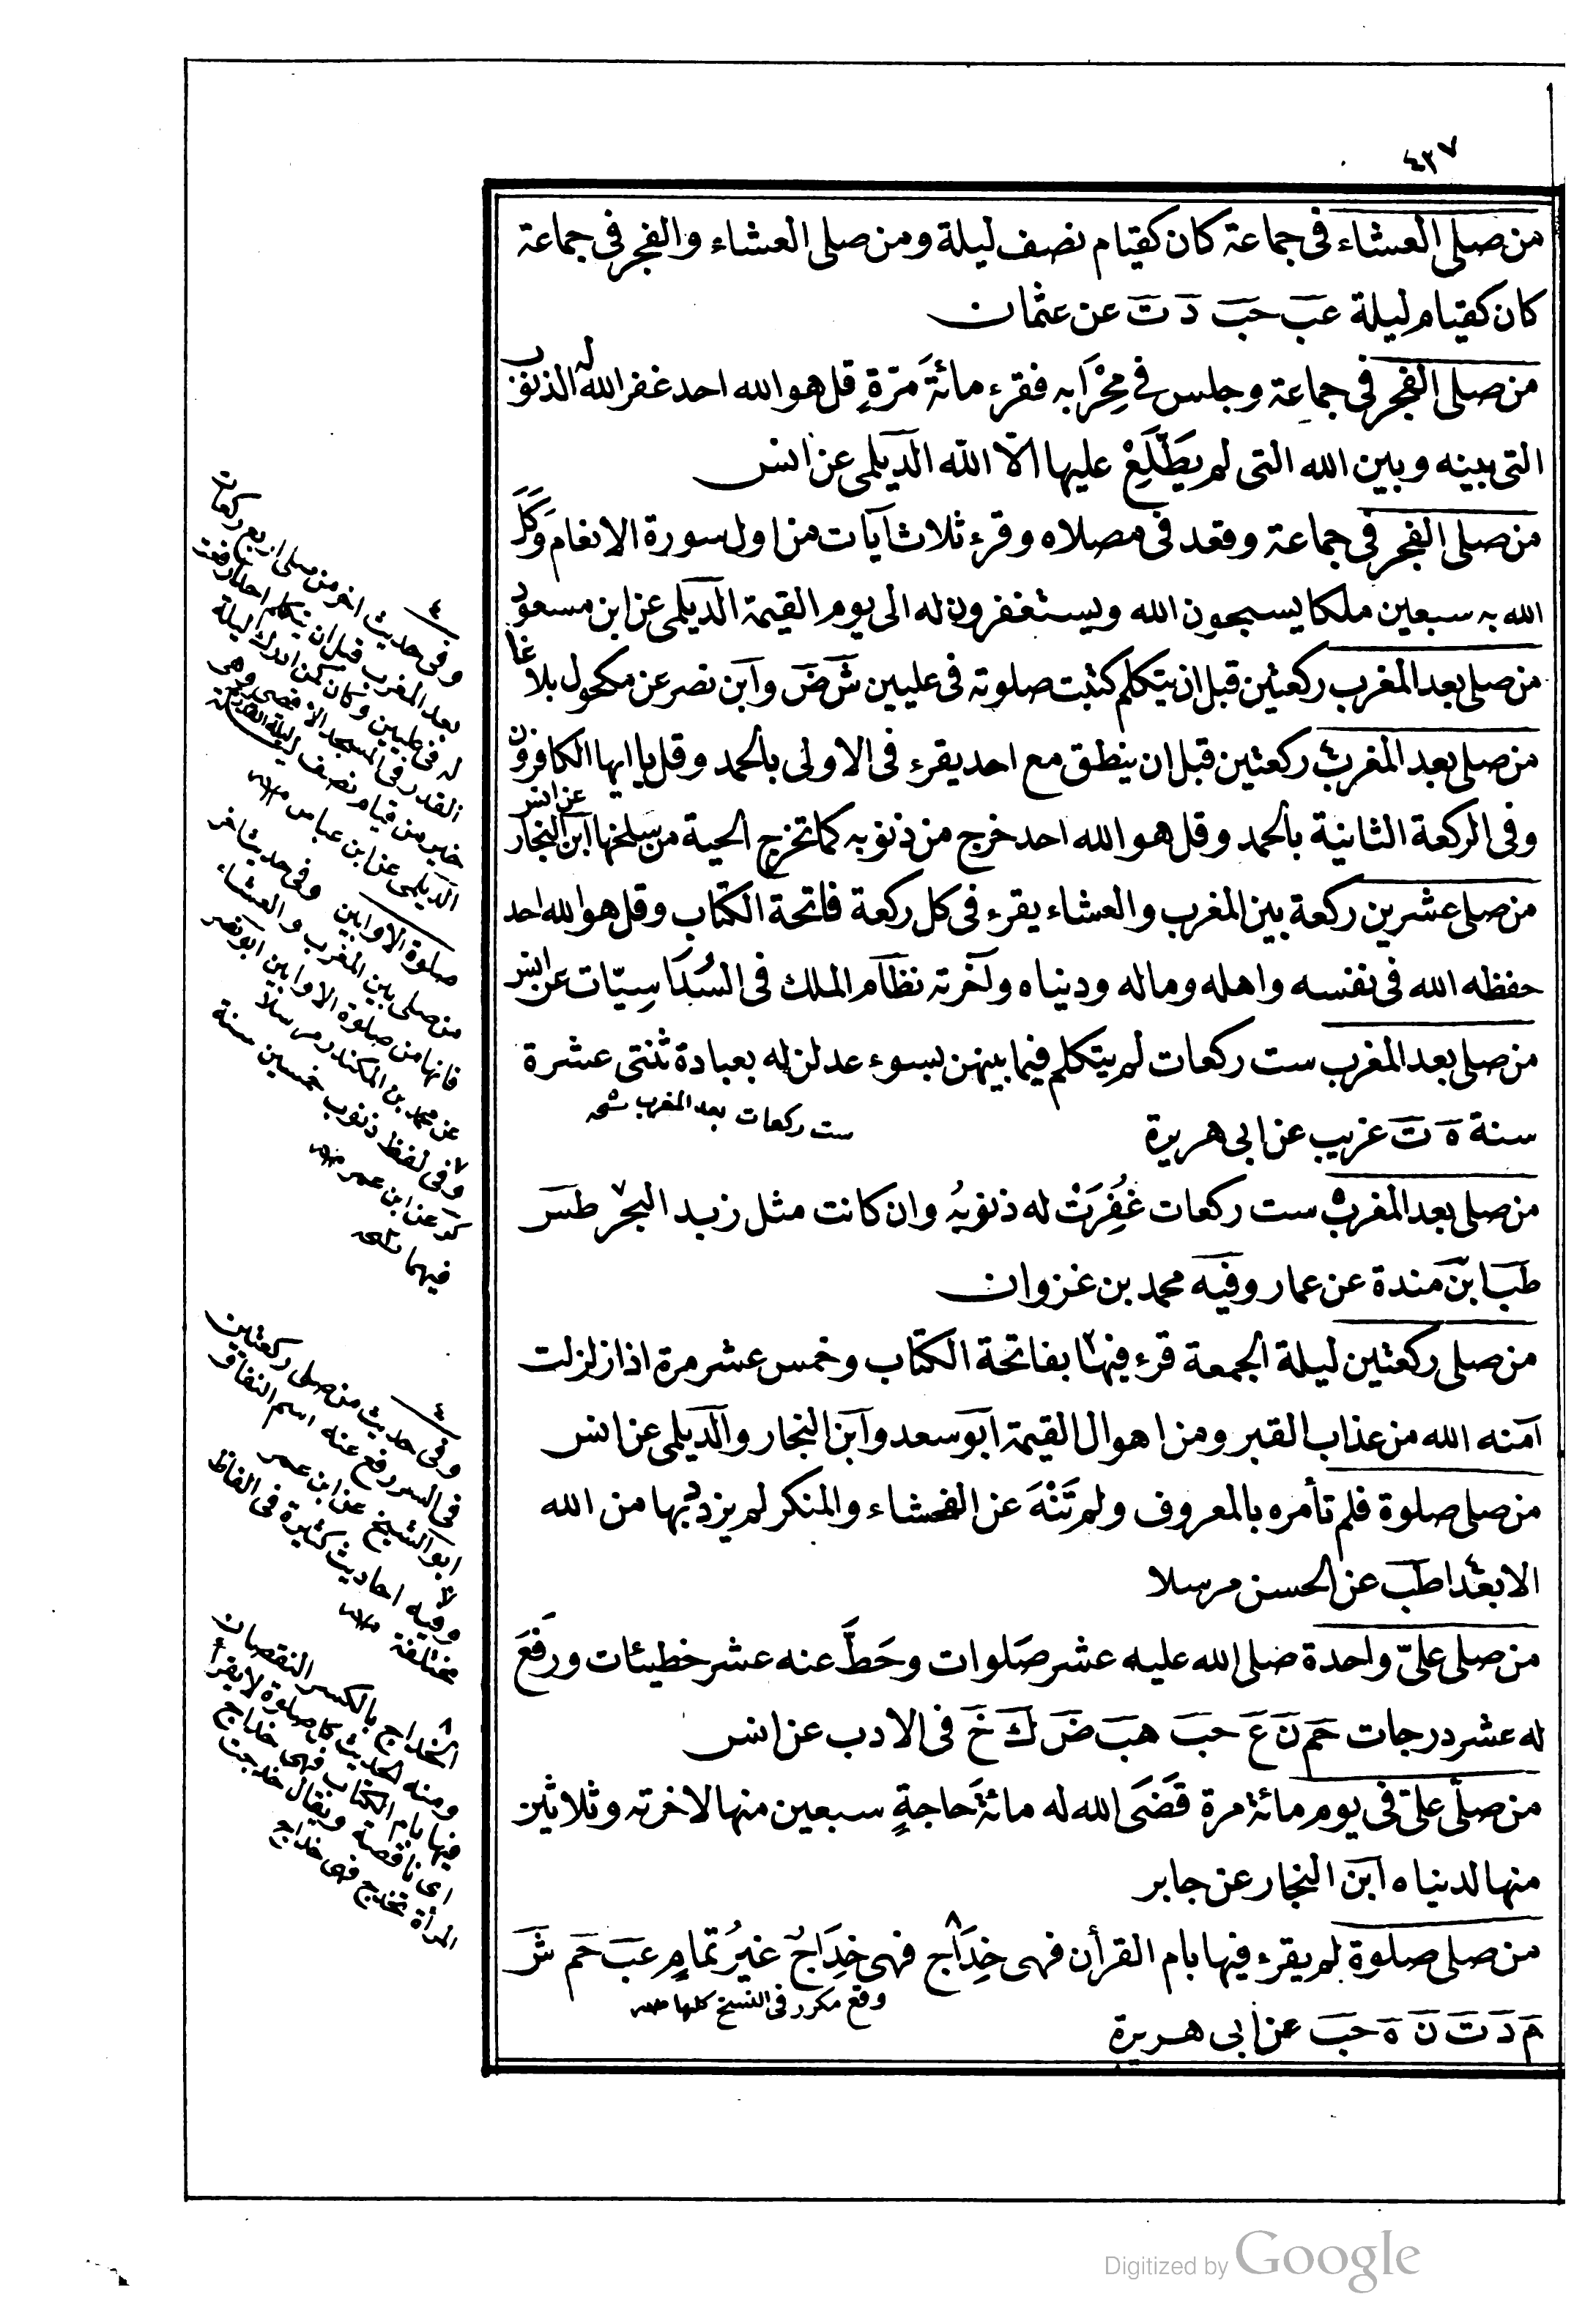 ٤٣٧
من صلى العشاء فى جماعة كان كقيام نصف ليلة ومن صلى العشاء والفجر فى جماعة
كان كقيام ليلة عب حب د ت عن عثمان
من صلى الفجر فى جماعة وجلس فى مِحْرَابه فقرء مائةَ مَرّةٍ قل هو الله احد غفر الله له الذنوب
التى بينه وبين الله التى لم يَطَّلِعْ عليها الّا الله الديلمى عن انس
من صلى الفجر فى جماعة وقعد فى مصلاه وقرء ثلاث آيات من اول سورة الانعام وَكَّلَ
الله به سبعين ملكا يسبحون الله ويستغفرون له الى يوم القيمة الديلمى عن ابن مسعود
من صلى بعد المغرب ركعتين قبل ان يتكلم كتبت صلوته فى عليين ش ض وابن نصر عن مكحول بلاغا
من صلى بعد المغرب ٤ ركعتين قبل ان ينطق مع احد يقرء فى الاولى بالحمد وقل يا ايها الكافرون
وفى الركعة الثانية بالحمد وقل هو الله احد خرج من ذنوبه كما تخرج الحية من سلخها ابن النجار عن انس
من صلى عشرين ركعة بين المغرب والعشاء يقرء فى كل ركعة فاتحة الكتاب وقل هو الله احد
حفظه الله فى نفسه واهله وماله ودنياه وآخرته نظام الملك فى السُدَاسِيّات عن انس
من صلى بعد المغرب ست ركعات لم يتكلم فيما بينهن بسوء عدلن له بعبادة ثنتى عشرة
سنة ه ت غريب عن ابى هريرة
ست ركعات بعد المغرب
من صلى بعد المغرب ست ركعات غُفِرَتْ له ذنوبُه وان كانت مثل زبد البحر طس
طب ابن مندة عن عمار وفيه محمد بن غزوان
من صلى ركعتين ليلة الجمعة قرء فيها بفاتحة الكتاب وخمس عشر مرة اذا زلزلت
آمنه الله من عذاب القبر ومن اهوال القيمة ابو سعد وابن النجار والديلمى عن انس
من صلى صلوة فلم تأمره بالمعروف ولم تَنْهَ عن الفحشاء والمنكر لم يزدد بها من الله
الا بعدا طب عن الحسن مرسلا
من صلى علىّ واحدة صلى الله عليه عشر صَلوات وحَطَّ عنه عشر خطيئات ورفعَ
له عشر درجات حم ن ع حب هب ض ك خ فى الادب عن انس
من صلّى علىّ فى يوم مائة مرة قَضَى الله له مائةَ حاجةٍ سبعين منها لاخرته وثلاثين
منها لدنياه ابن النجار عن جابر
من صلى صلوة لم يقرء فيها بام القرأن فهى خِدَاج ٨ فهى خِدَاجٌ غيرُ تمامٍ عب حم ش
وقع مكرر فى النسخ كلها
م د ت ن ه حب عن ابى هريرة
٤
وفى حديث اخر من صلى اربع ركعات
بعد المغرب قبل ان يتكلم احدا رفعت
له فى عليين وكان كمن ادرك ليلة
القدر فى المسجد الاقصى وهى
خير من قيام نصف ليلة
الديلمى عن ابن عباس
صلوة الاوابين وفى حديث اخر
من صلى بين المغرب والعشاء
فانها من صلوة الاوابين ابو نصر
عن محمد بن المكندر مرسلا
٧
وفى لفظ ذنوب خمسين سنة
كر عن ابن عمر
فيهما
٤
وفى حديث من صلى ركعتين
فى السر رفع عنه اسم النفاق
ابو الشيخ عن ابن عمر
وفيه احاديث كثيرة فى الفاظ
مختلفة
٨
الخداج بالكسر النقصان
ومنه الحديث كل صلوة لا يقرأ
فيها بام الكتاب فهى خداج
اى ناقصة ويقال خدجت
المرأة تخدج فهى خداج
Digitized by Google